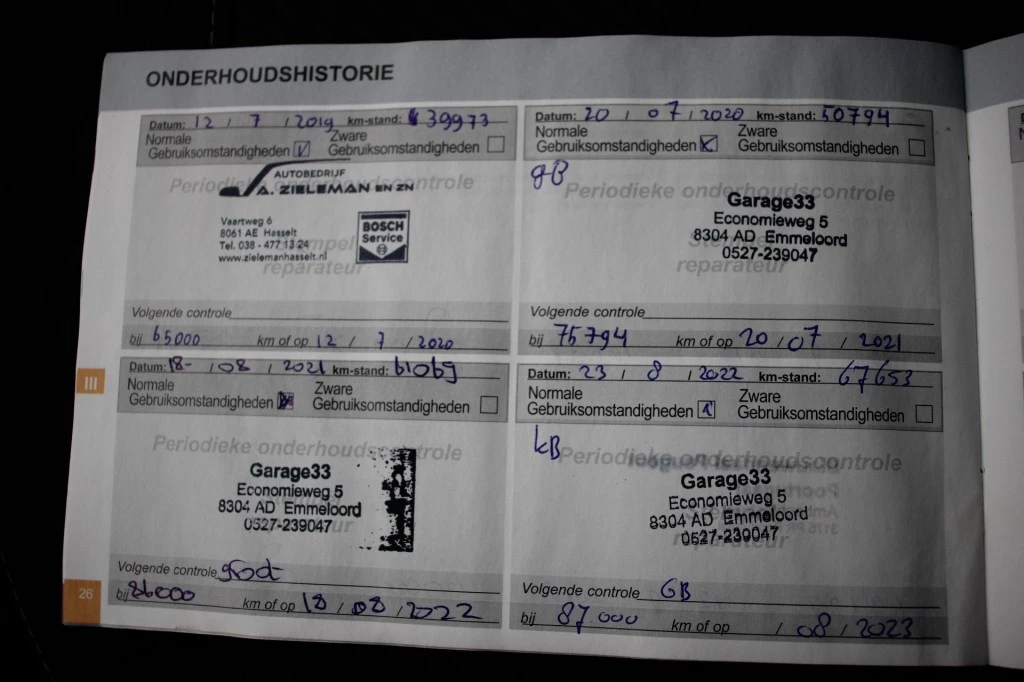 ONDERHOUDSHISTORIE
Datum: 12 / 7 / 2019 km-stand: 39973
Normale Gebruiksomstandigheden
Zware Gebruiksomstandigheden
Periodieke onderhoudscontrole
AUTOBEDRIJF
A. ZIELEMAN EN ZN
Vaartweg 6
8061 AE Hasselt
Tel. 038 - 477 13 24
www.zielemanhasselt.nl
BOSCH
Service
Stempel
reparateur
Volgende controle
bij 65000 km of op 12 / 7 / 2020
Datum: 20 / 07 / 2020 km-stand: 50794
Normale Gebruiksomstandigheden
Zware Gebruiksomstandigheden
gB
Periodieke onderhoudscontrole
Garage33
Economieweg 5
8304 AD Emmeloord
0527-239047
reparateur
Volgende controle
bij 75794 km of op 20 / 07 / 2021
III
Datum: 18- / 08 / 2021 km-stand: 61069
Normale Gebruiksomstandigheden
Zware Gebruiksomstandigheden
Periodieke onderhoudscontrole
Garage33
Economieweg 5
8304 AD Emmeloord
0527-239047
reparateur
Volgende controle
bij 86000 km of op 18 / 08 / 2022
Datum: 23 / 8 / 2022 km-stand: 67653
Normale Gebruiksomstandigheden
Zware Gebruiksomstandigheden
kB
Periodieke onderhoudscontrole
Garage33
Economieweg 5
8304 AD Emmeloord
0527-239047
reparateur
Volgende controle GB
bij 87.000 km of op / 08 / 2023
26